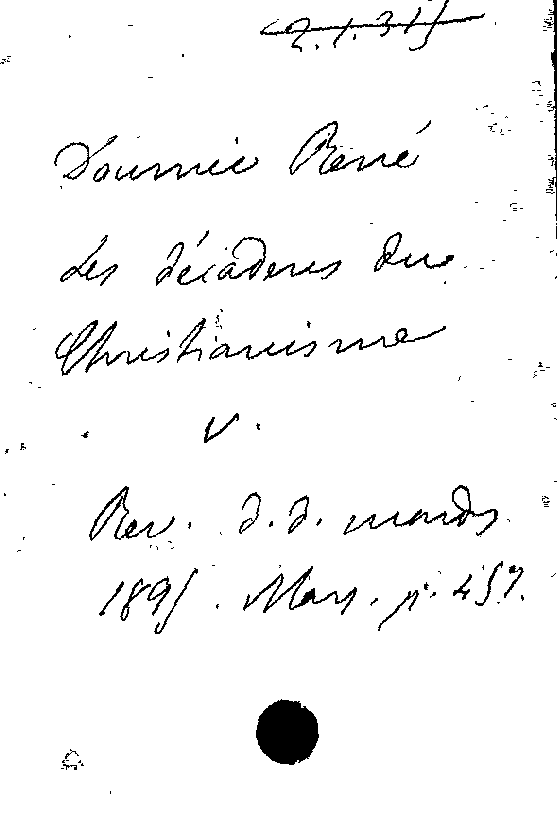 2.1.315
Doumic René
Les décadens du
Christianisme
v.
Rev. d. d. mondes
1895. Mars. p. 457.